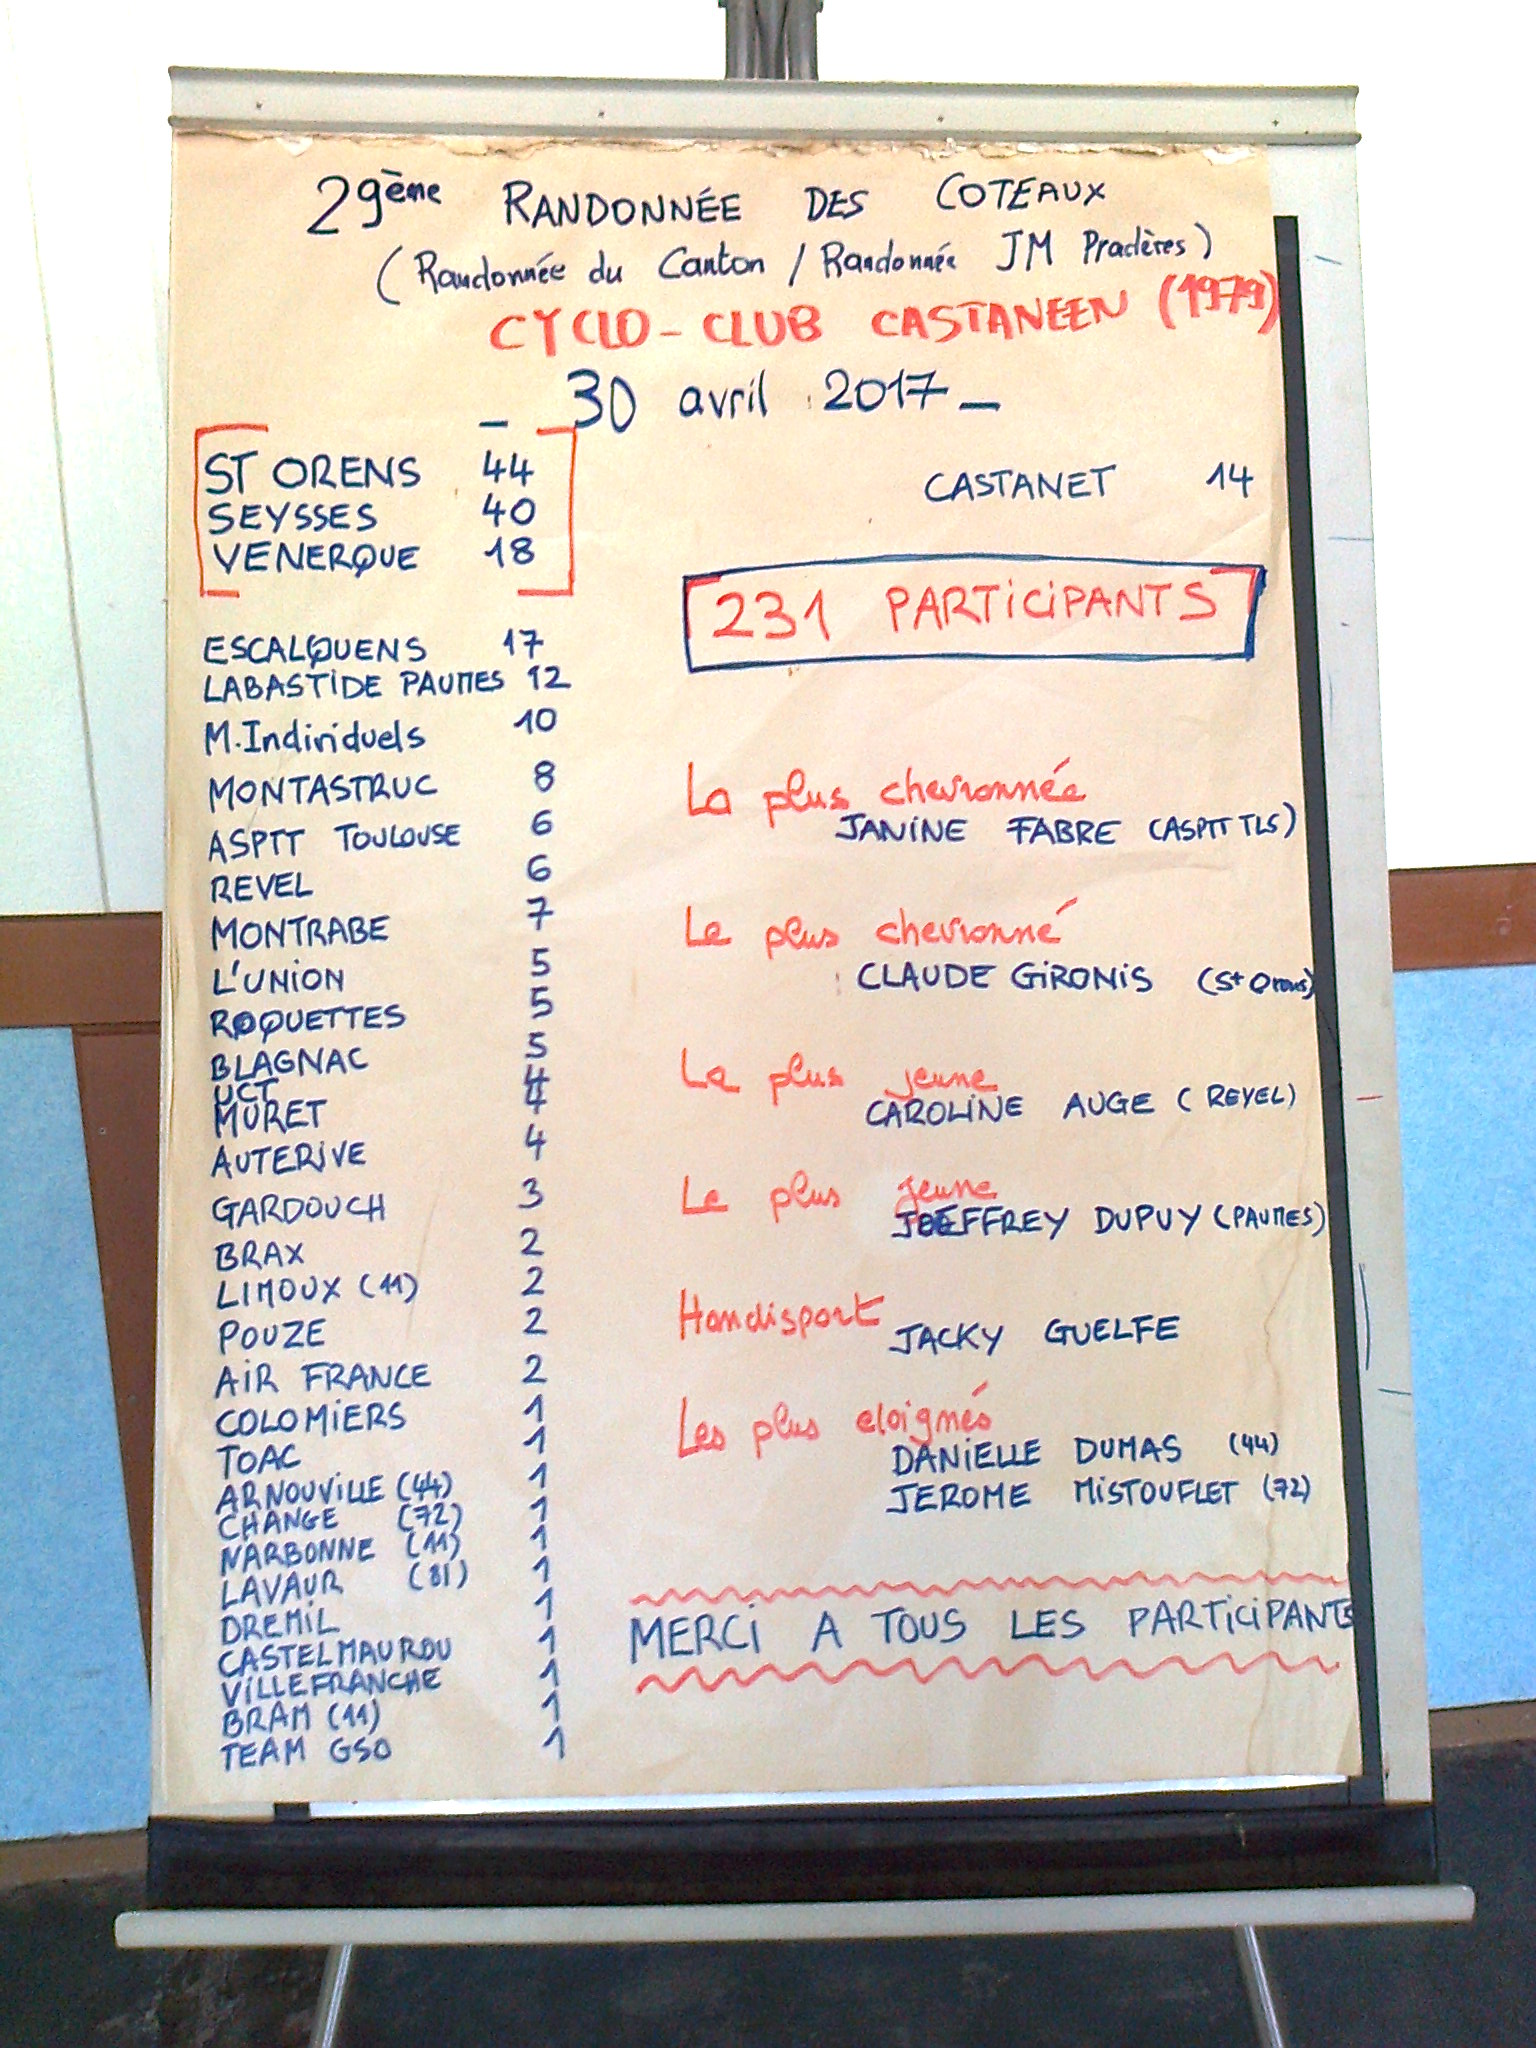 29ème RANDONNÉE DES COTEAUX
(Randonnée du Canton / Randonnée JM Pradères)
CYCLO-CLUB CASTANEEN (1979)
_ 30 avril 2017 _
ST ORENS 44
SEYSSES 40
VENERQUE 18
ESCALQUENS 17
LABASTIDE PAUMES 12
M.Individuels 10
MONTASTRUC 8
ASPTT TOULOUSE 6
REVEL 6
MONTRABE 7
L'UNION 5
ROQUETTES 5
BLAGNAC 5
UCT 4
MURET 4
AUTERIVE 4
GARDOUCH 3
BRAX 2
LIMOUX (11) 2
POUZE 2
AIR FRANCE 2
COLOMIERS 1
TOAC 1
ARNOUVILLE (44) 1
CHANGE (72) 1
NARBONNE (11) 1
LAVAUR (81) 1
DREMIL 1
CASTELMAUROU 1
VILLEFRANCHE 1
BRAM (11) 1
TEAM GSO 1
CASTANET 14
231 PARTICIPANTS
La plus chevronnée
JANINE FABRE (ASPTT TLS)
Le plus chevronné
CLAUDE GIRONIS (St Orens)
La plus jeune
CAROLINE AUGE (REVEL)
Le plus jeune
JOEFFREY DUPUY (PAUMES)
Handisport
JACKY GUELFE
Les plus eloignés
DANIELLE DUMAS (44)
JEROME MISTOUFLET (72)
MERCI A TOUS LES PARTICIPANTS